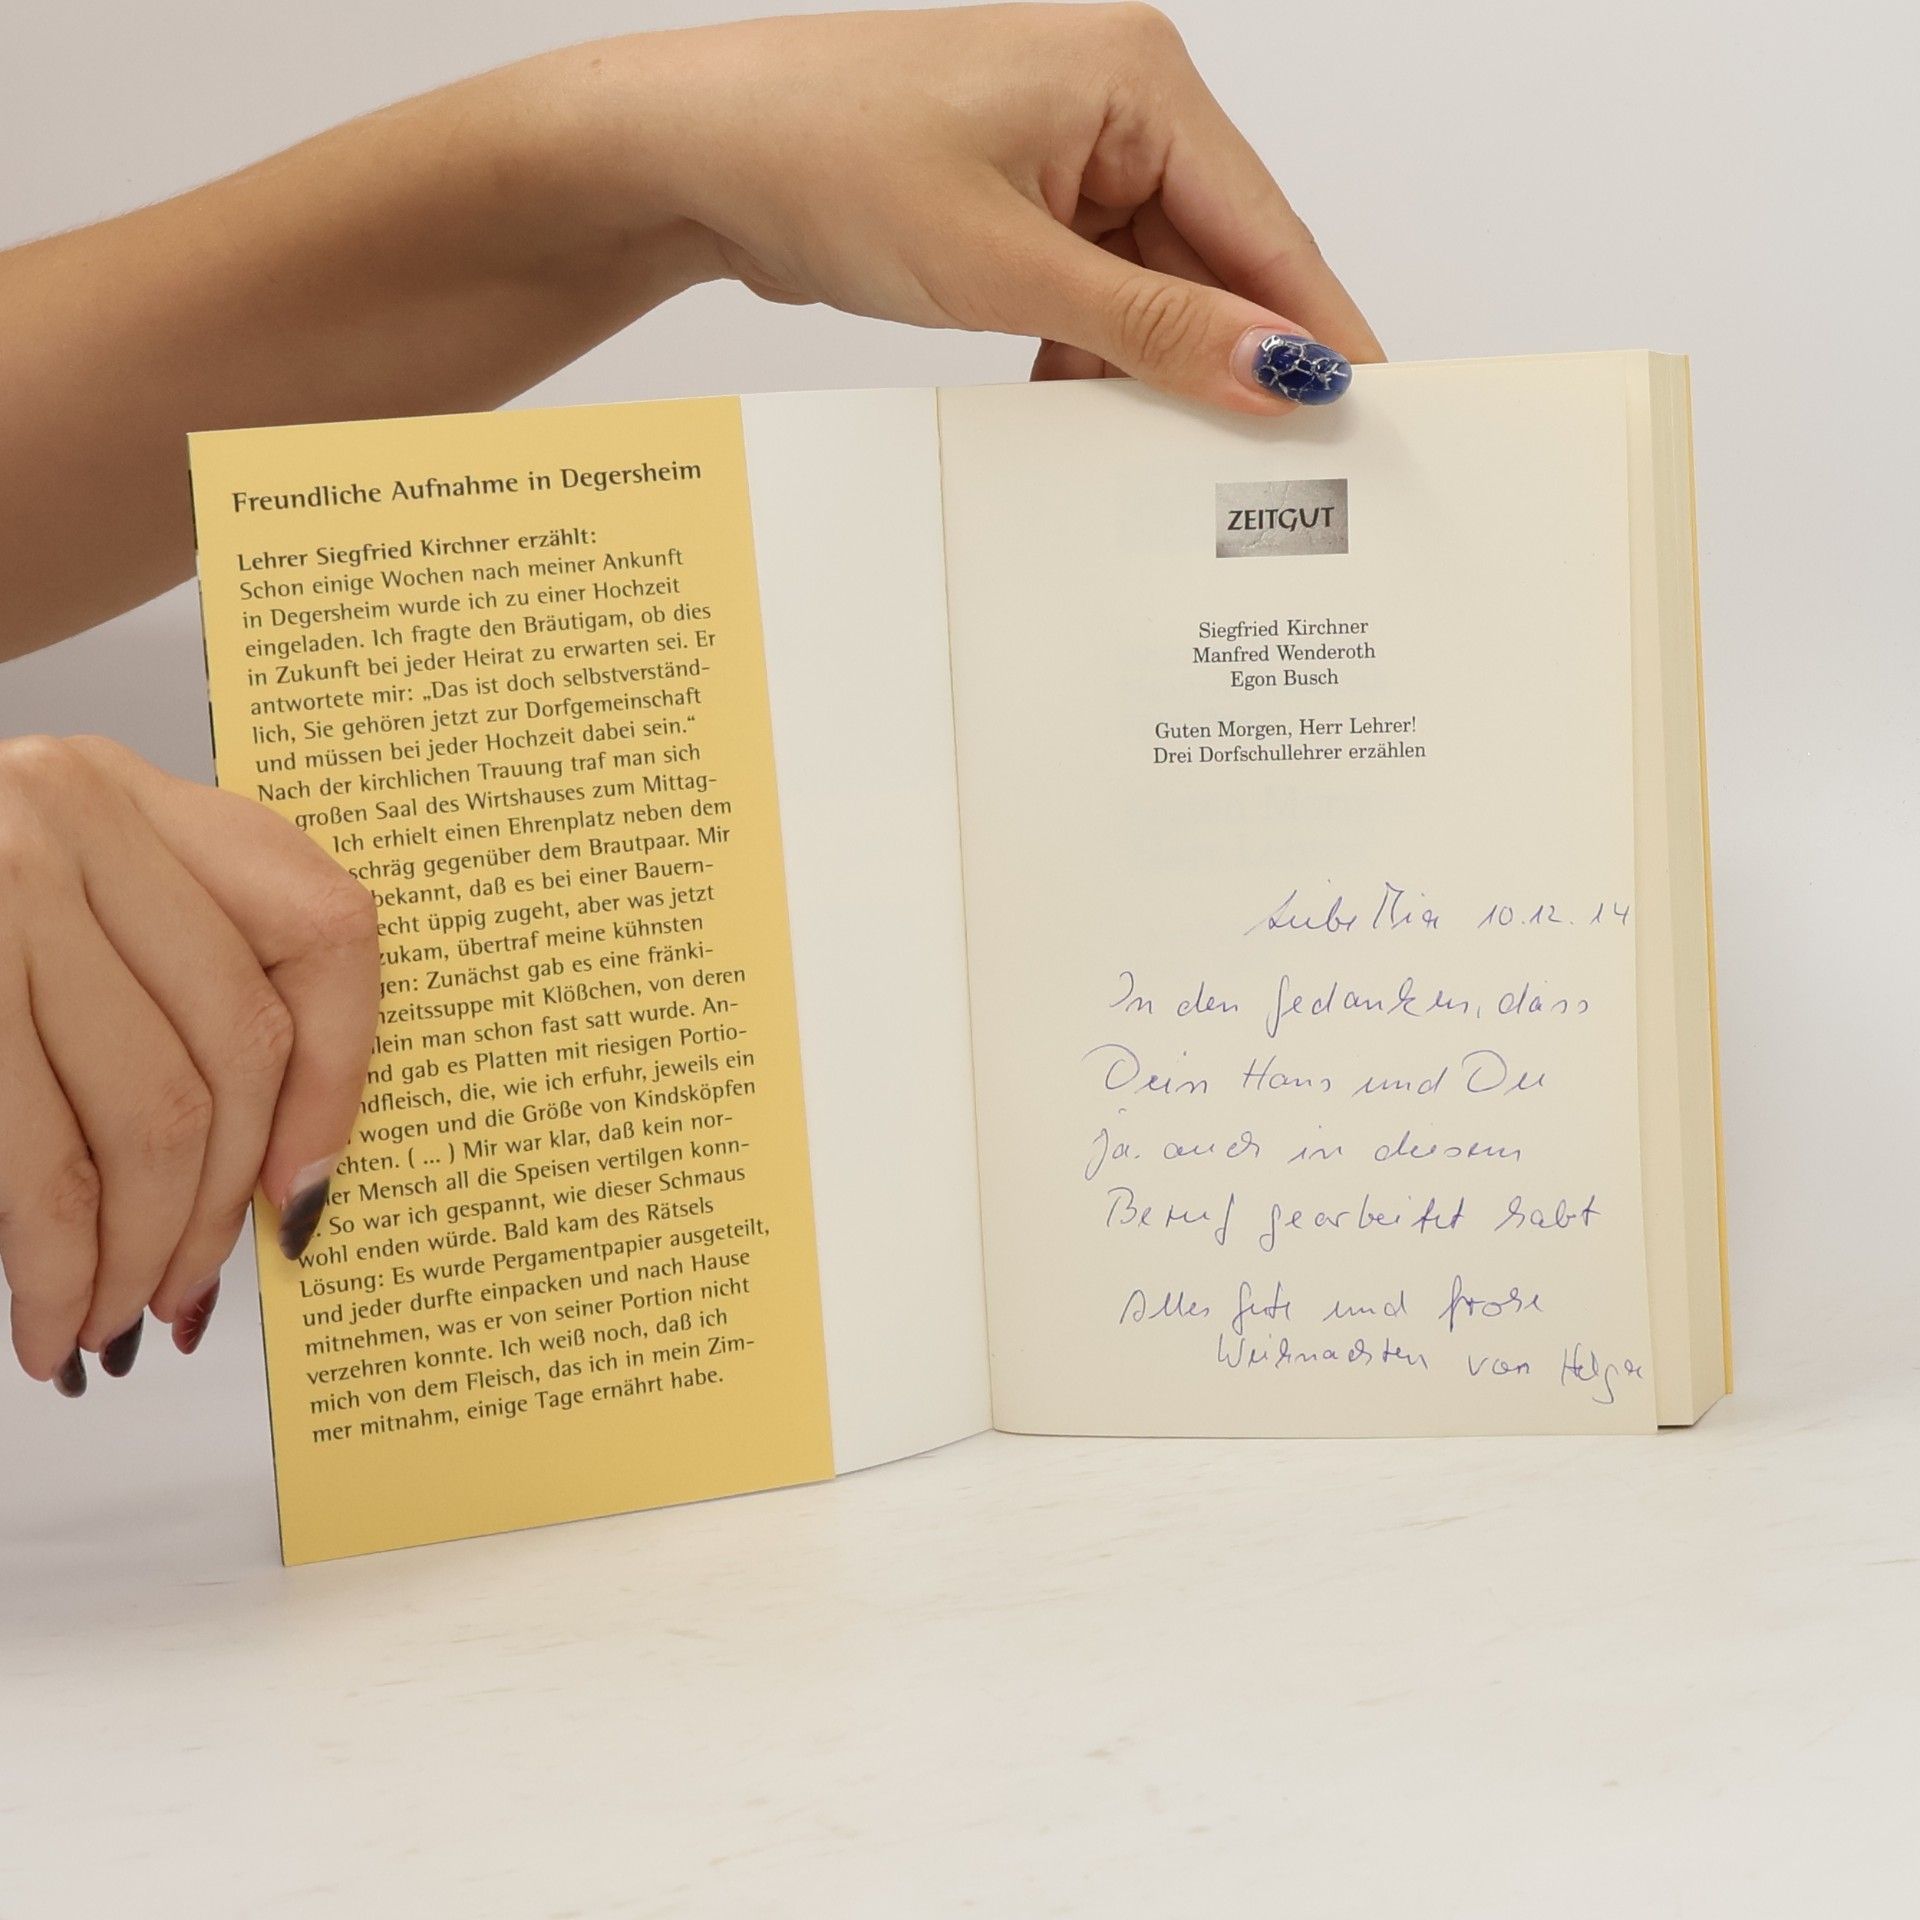 Freundliche Aufnahme in Degersheim
Lehrer Siegfried Kirchner erzählt:
Schon einige Wochen nach meiner Ankunft
in Degersheim wurde ich zu einer Hochzeit
eingeladen. Ich fragte den Bräutigam, ob dies
in Zukunft bei jeder Heirat zu erwarten sei. Er
antwortete mir: „Das ist doch selbstverständ-
lich, Sie gehören jetzt zur Dorfgemeinschaft
und müssen bei jeder Hochzeit dabei sein.“
Nach der kirchlichen Trauung traf man sich
großen Saal des Wirtshauses zum Mittag-
Ich erhielt einen Ehrenplatz neben dem
schräg gegenüber dem Brautpaar. Mir
bekannt, daß es bei einer Bauern-
echt üppig zugeht, aber was jetzt
zukam, übertraf meine kühnsten
gen: Zunächst gab es eine fränki-
nzeitssuppe mit Klößchen, von deren
lein man schon fast satt wurde. An-
nd gab es Platten mit riesigen Portio-
ndfleisch, die, wie ich erfuhr, jeweils ein
wogen und die Größe von Kindsköpfen
chten. ( ... ) Mir war klar, daß kein nor-
ler Mensch all die Speisen vertilgen konn-
. So war ich gespannt, wie dieser Schmaus
wohl enden würde. Bald kam des Rätsels
Lösung: Es wurde Pergamentpapier ausgeteilt,
und jeder durfte einpacken und nach Hause
mitnehmen, was er von seiner Portion nicht
verzehren konnte. Ich weiß noch, daß ich
mich von dem Fleisch, das ich in mein Zim-
mer mitnahm, einige Tage ernährt habe.
ZEITGUT
Siegfried Kirchner
Manfred Wenderoth
Egon Busch
Guten Morgen, Herr Lehrer!
Drei Dorfschullehrer erzählen
Liebe Mia 10.12.14
In den Gedanken, dass
Dein Hans und Du
ja auch in diesem
Beruf gearbeitet habt
Alles Gute und frohe
Weihnachten von Helga